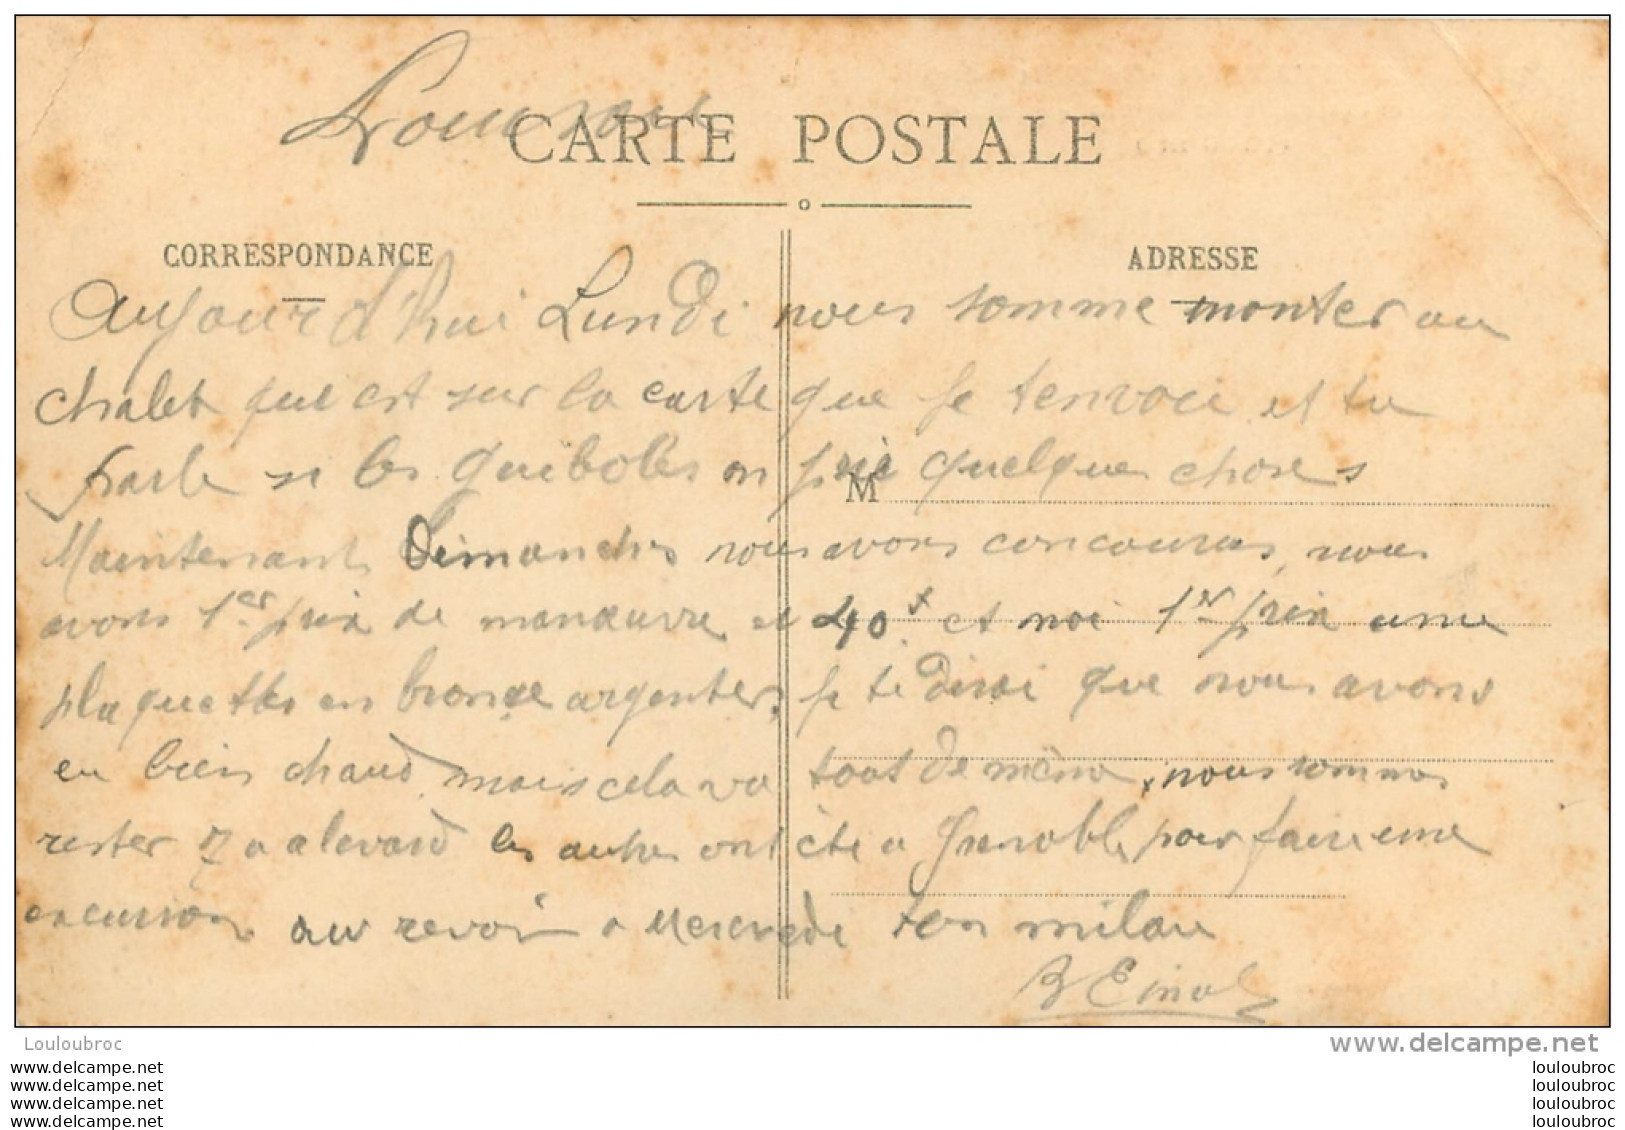 CARTE POSTALE
CORRESPONDANCE
ADRESSE
aujourd'hui Lundi nous somme monter au
chalet que est sur la carte que je tenvoie et tu
parle si les guiboles on pri quelques choses
M
Maintenant Dimanches nous avons concourus, nous
avons 1er prix de manœuvre et 40f. et moi 1er prix une
plaquettes en bronze argenter, je te dirai que nous avons
eu bien chaud, mais cela va tout de même, nous sommes
rester 7 a alevard les autres ont été a Grenoble pour faire une
excursion au revoir a Mercrede ton
Louloubroc
www.delcampe.net
louloubroc.eklablog.com
louloubroc.eklablog.com
louloubroc.eklablog.com
louloubroc.eklablog.com
louloubroc
louloubroc
louloubroc
louloubroc